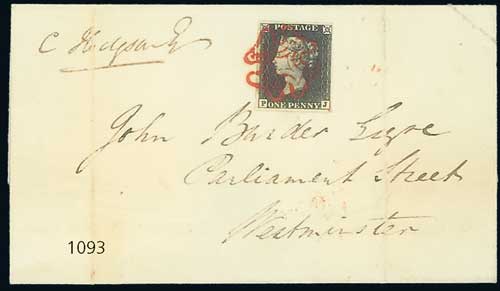 C Hodgson Esq
POSTAGE
P ONE PENNY J
John Burder Esqre
Parliament Street
Westminster
1093